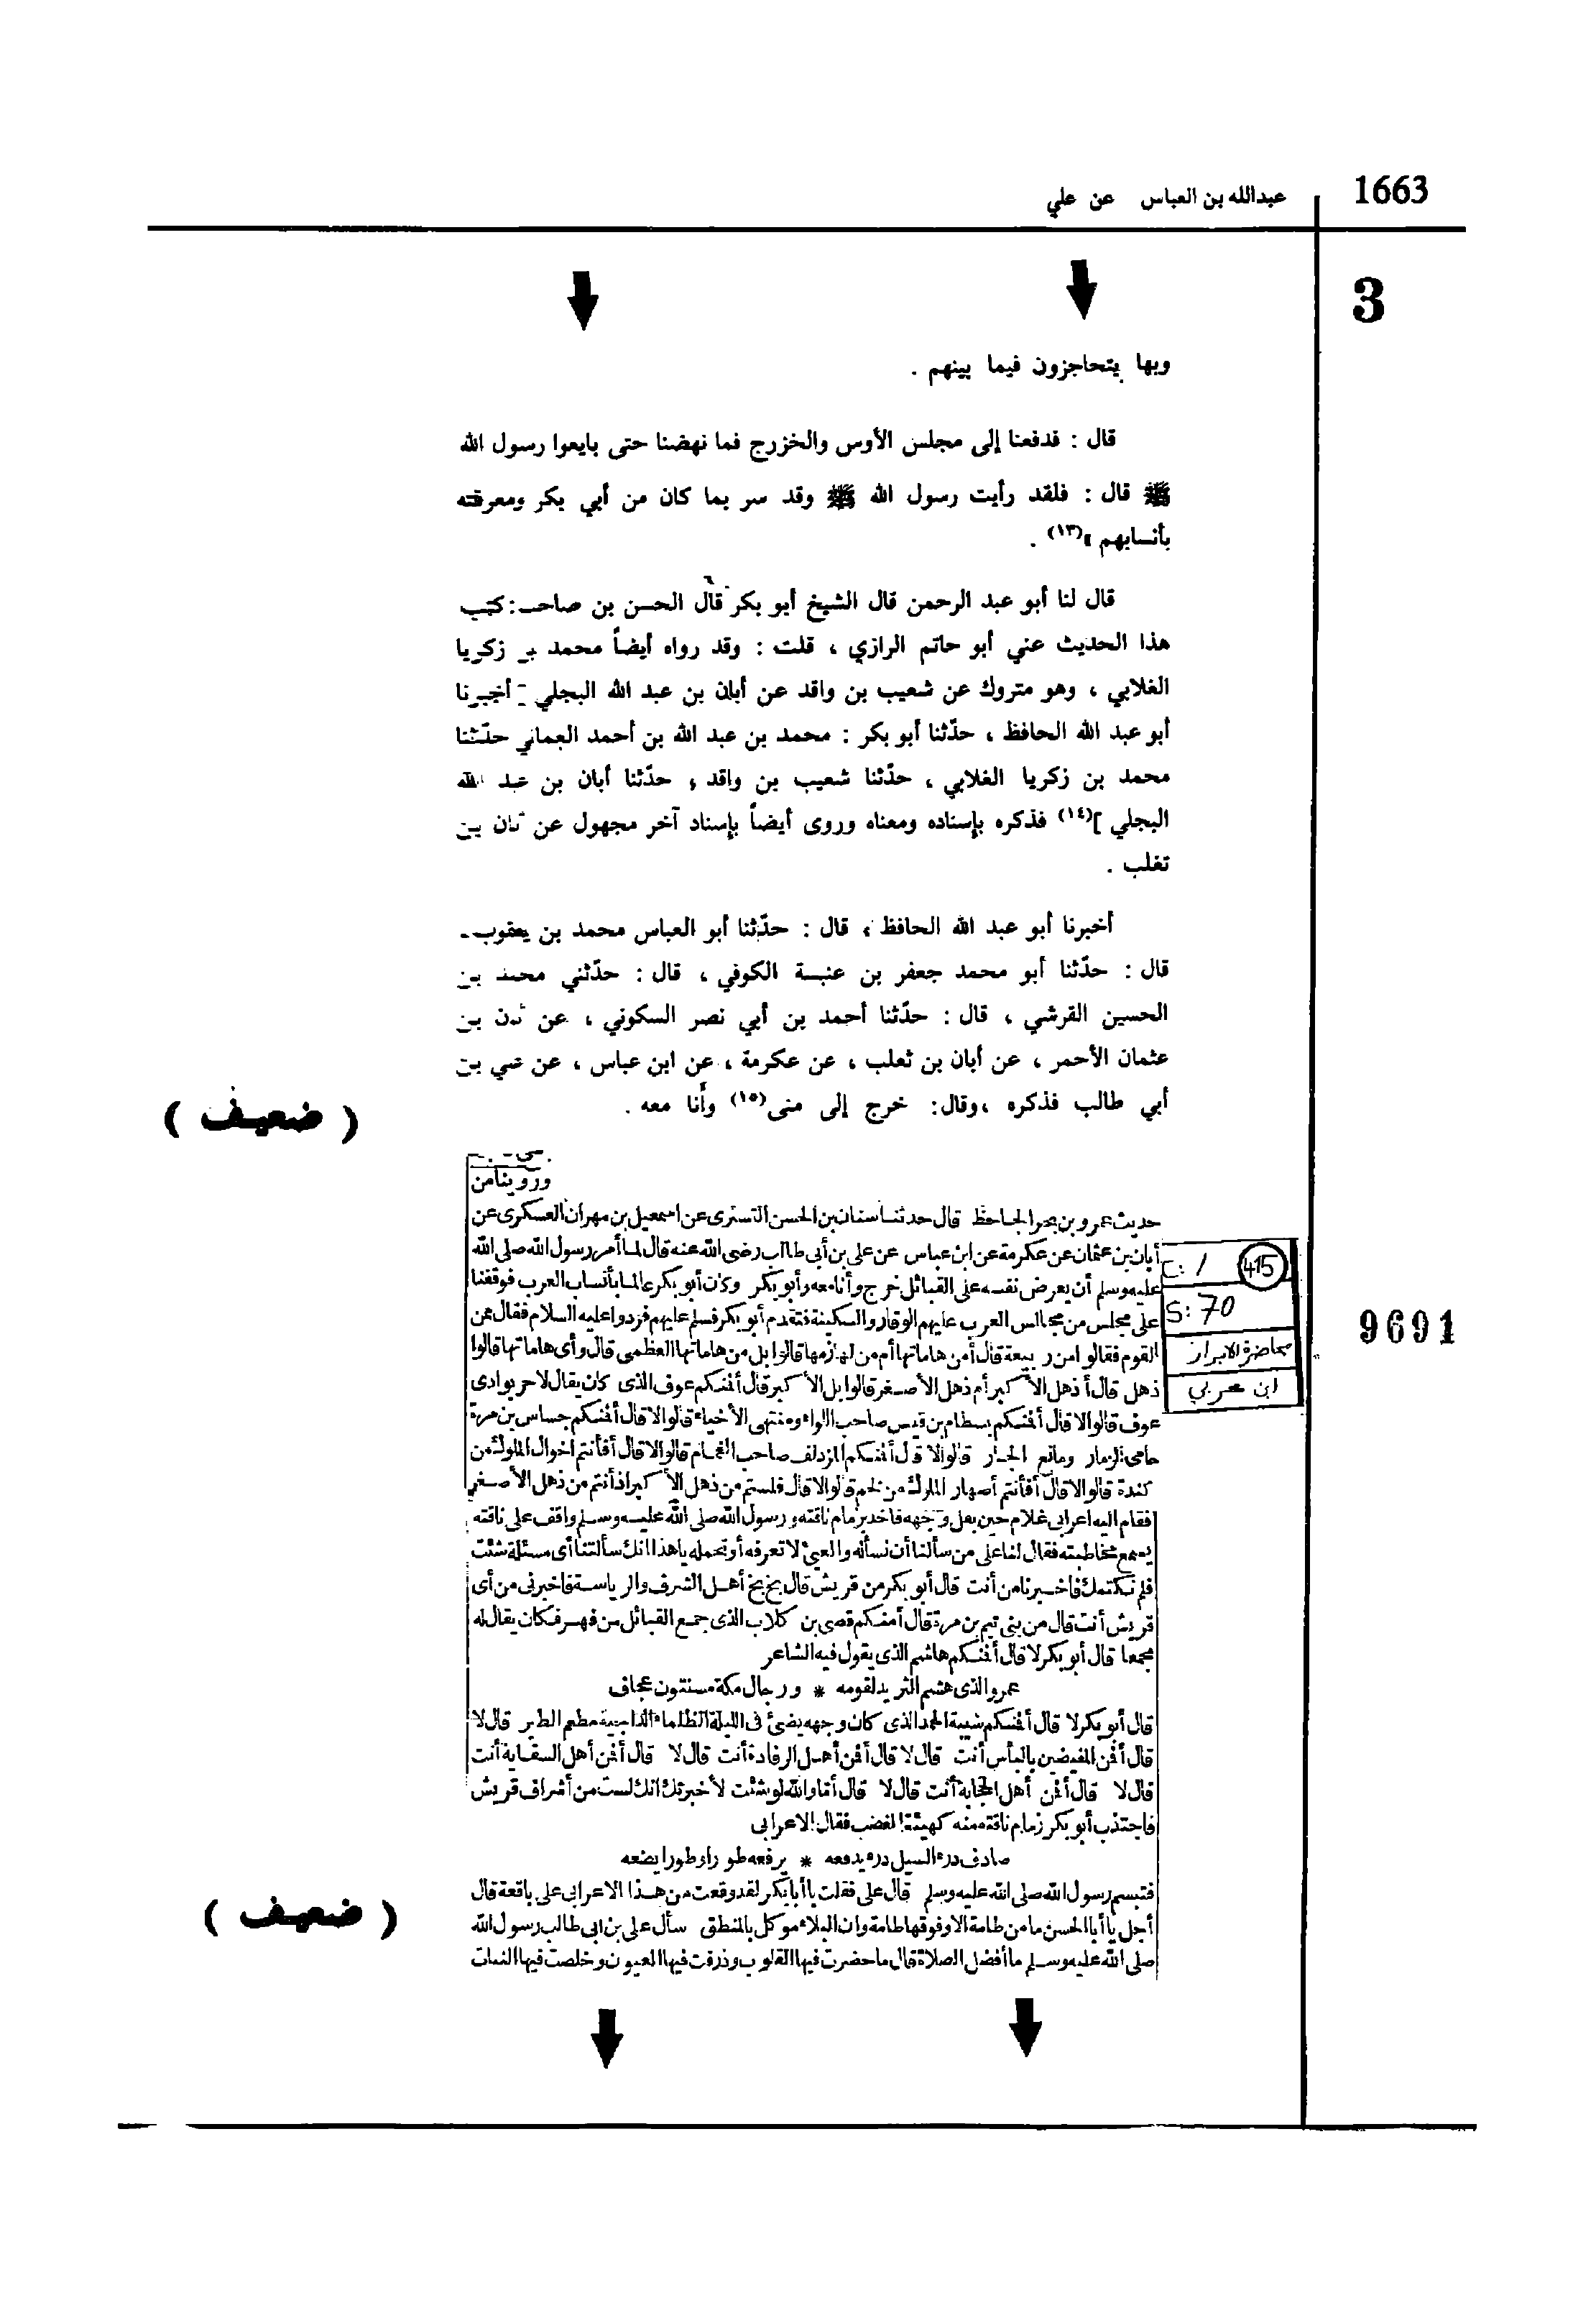 1663
عبدالله بن العباس عن علي
3
وبها يتحاجزون فيما بينهم .
قال : فدفعنا إلى مجلس الأوس والخزرج فما نهضنا حتى بايعوا رسول الله
ﷺ قال : فلقد رأيت رسول الله ﷺ وقد سر بما كان من أبي بكر ومعرفته
بأنسابهم »(١٣) .
قال لنا أبو عبد الرحمن قال الشيخ أبو بكر قال الحسن بن صاحب : كتب
هذا الحديث عني أبو حاتم الرازي ، قلت : وقد رواه أيضاً محمد بن زكريا
الغلابي ، وهو متروك عن شعيب بن واقد عن أبان بن عبد الله البجلي [ أخبرنا
أبو عبد الله الحافظ ، حدّثنا أبو بكر : محمد بن عبد الله بن أحمد العماني حدّثنا
محمد بن زكريا الغلابي ، حدّثنا شعيب بن واقد ، حدّثنا أبان بن عبد الله
البجلي ](١٤) فذكره بإسناده ومعناه وروى أيضاً بإسناد آخر مجهول عن أبان بن
تغلب .
أخبرنا أبو عبد الله الحافظ ، قال : حدّثنا أبو العباس محمد بن يعقوب
قال : حدّثنا أبو محمد جعفر بن عنبسة الكوفي ، قال : حدّثني محمد بن
الحسين القرشي ، قال : حدّثنا أحمد بن أبي نصر السكوني ، عن أبان بن
عثمان الأحمر ، عن أبان بن ثعلب ، عن عكرمة ، عن ابن عباس ، عن علي بن
أبي طالب فذكره ، وقال : خرج إلى منى(١٥) وأنا معه .
( ضعيف )
وروينا من
حديث عمرو بن بحر الجاحظ قال حدثنا سنان بن الحسن التسترى عن اسمعيل بن مهران العسكرى عن
أبان بن عثمان عن عكرمة عن ابن عباس عن على بن أبى طالب رضى الله عنه قال لما أمر رسول الله صلى الله
عليه وسلم أن يعرض نفسه على القبائل خرج وأنا معه وأبو بكر وكان أبو بكر عالما بأنساب العرب فوقفنا
على مجلس من مجالس العرب عليهم الوقار والسكينة فتقدم أبو بكر فسلم عليهم فردوا عليه السلام فقال ممن
القوم فقالوا من ربيعة قال أمن هاماتها أم من لهازمها قالوا بل من هاماتها العظمى قال وأى هاماتها قالوا
ذهل قال أذهل الأكبر أم ذهل الأصغر قالوا بل الأكبر قال أفنكم عوف الذى كان يقال لا حر بوادى
عوف قالوا لا قال أفنكم بسطام بن قيس صاحب اللواء ومنتهى الأحياء قالوا لا قال أفنكم جساس بن مرة
حامى الزمار ومانع الجار قالوا لا قال أفنكم المزدلف صاحب الغمام قالوا لا قال أفأنتم اخوال الملوك من
كندة قالوا لا قال أفأنتم أصهار الملوك من لخم قالوا لا قال فلستم من ذهل الأكبر اذا أنتم من ذهل الأصغر
فقام اليه اعرابى غلام حين بقل وجهه فاخد بزمام ناقته ورسول الله صلى الله عليه وسلم واقف على ناقته
يسمع مخاطبته فقال لنا على من سألنا أن نسأله والعبء لا تعرفه أو تحمله يا هذا انك سألتنا أى مسئلة شئت
فلم نكتمك فاخبرنا من أنت قال أبو بكر من قريش قال بخ بخ أهل الشرف والرياسة فاخبرنى من أى
قريش أنت قال من بنى تيم بن مرة قال أمنكم قصى بن كلاب الذى جمع القبائل من فهر فكان يقال له
مجمعا قال أبو بكر لا قال أفنكم هاشم الذى يقول فيه الشاعر
عمرو الذى هشم الثريد لقومه * ورجال مكة مسنتون عجاف
قال أبو بكر لا قال أفنكم شيبة الحمد الذى كان وجهه يضئ فى الليلة الظلماء الداجية مطعم الطير قال لا
قال أفن المفيضين بالناس أنت قال لا قال أفن أهل الرفادة أنت قال لا قال أفن أهل السقاية أنت
قال لا قال أفن أهل الحجابة أنت قال لا قال أما والله لو شئت لأخبرتك انك لست من أشراف قريش
فاجتذب أبو بكر زمام ناقته منه كهيئة المغضب فقال الاعرابى
صادف درء السيل درء يدفعه * يرفعه طورا وطورا يضعه
فتبسم رسول الله صلى الله عليه وسلم قال على فقلت يا أبا بكر لقد وقعت من هذا الاعرابى على باقعة قال
أجل يا أبا الحسن ما من طامة الا وفوقها طامة وان البلاء موكل بالمنطق سأل على بن ابى طالب رسول الله
صلى الله عليه وسلم ما أفضل الصلاة قال ما حضرت فيها القلوب وذرفت فيها العيون وخلصت فيها النيات
C: 1 415
S: 70
محاضرة الابرار
ابن عربي
9691
( ضعيف )